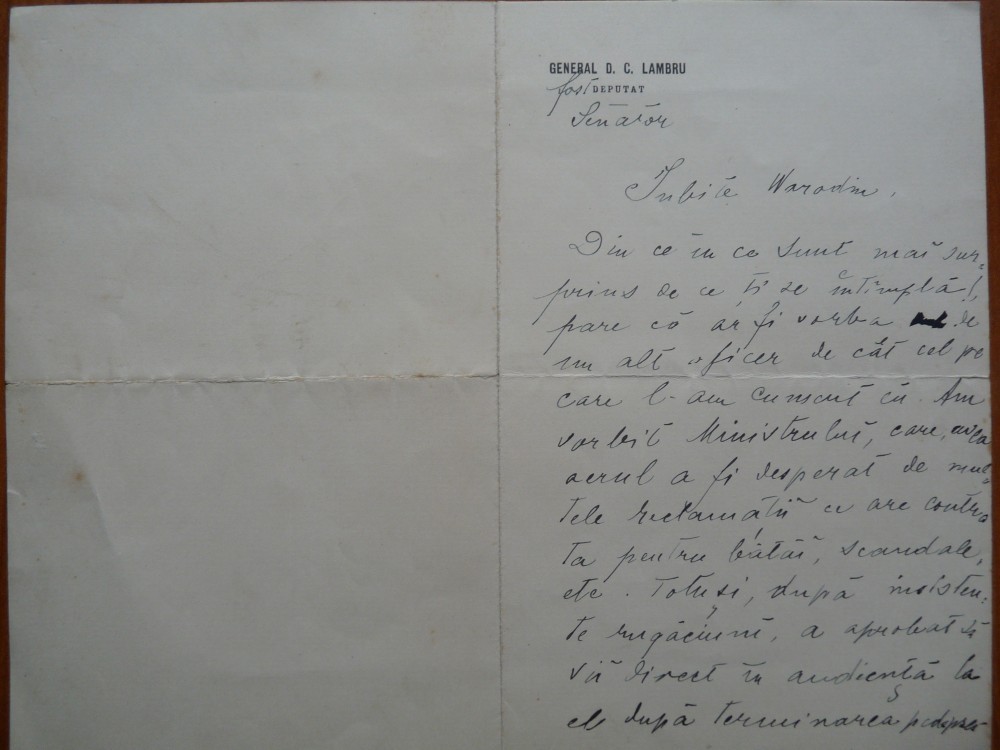 GENERAL D. C. LAMBRU
fost DEPUTAT
Senator
Iubite Warodin,
Din ce în ce sunt mai sur=
prins de ce ți se întîmplă!,
pare că ar fi vorba de
un alt oficer de cât cel pe
care l-am cunoscut eu. Am
vorbit Ministrului, care, avea
aerul a fi desperat de mul=
tele reclamații ce are contra
ta pentru bătăi, scandale,
etc. Totuși, după insisten=
te rugăciuni, a aprobat să
vii direct în audiență la
el după terminarea pedepsei